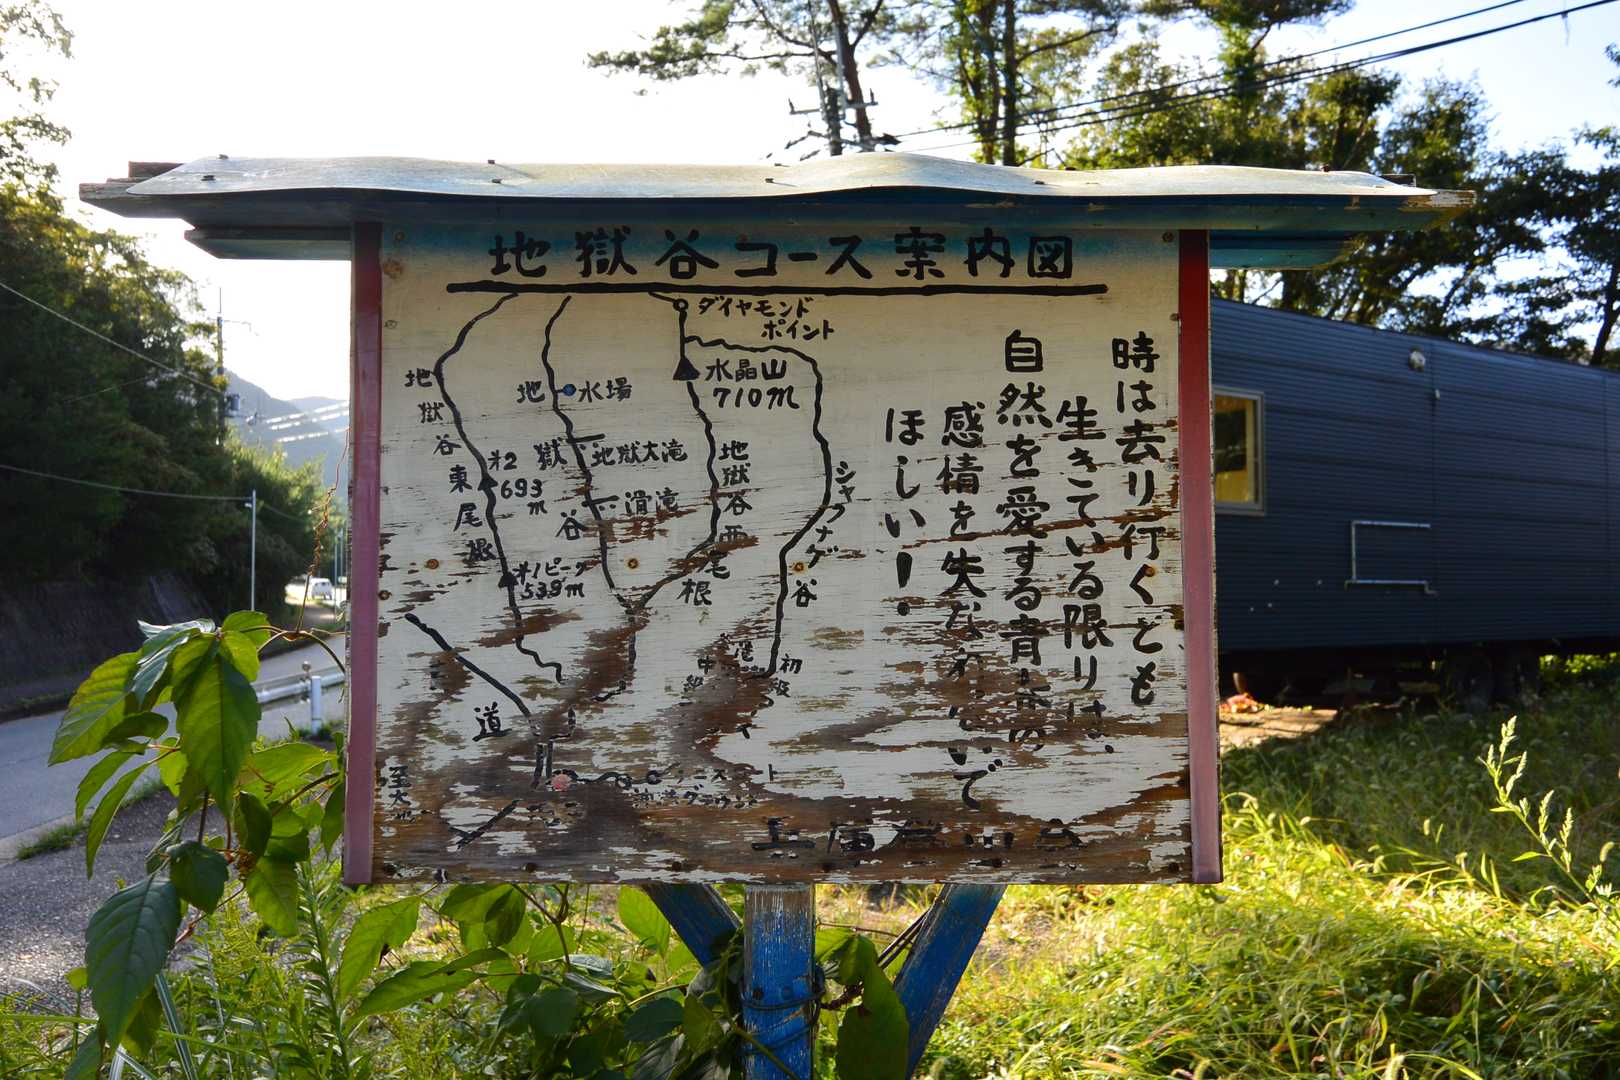 地獄谷コース案内図
ダイヤモンド
ポイント
水晶山
710m
地獄谷東尾根
地獄谷
水場
地獄大滝
滑滝
693
m
ピーク
539m
地獄谷西尾根
シャクナゲ谷
初級
中級
道
時は去り行くとも
生きている限りは、
自然を愛する青春の
感情を失なわないで
ほしい!